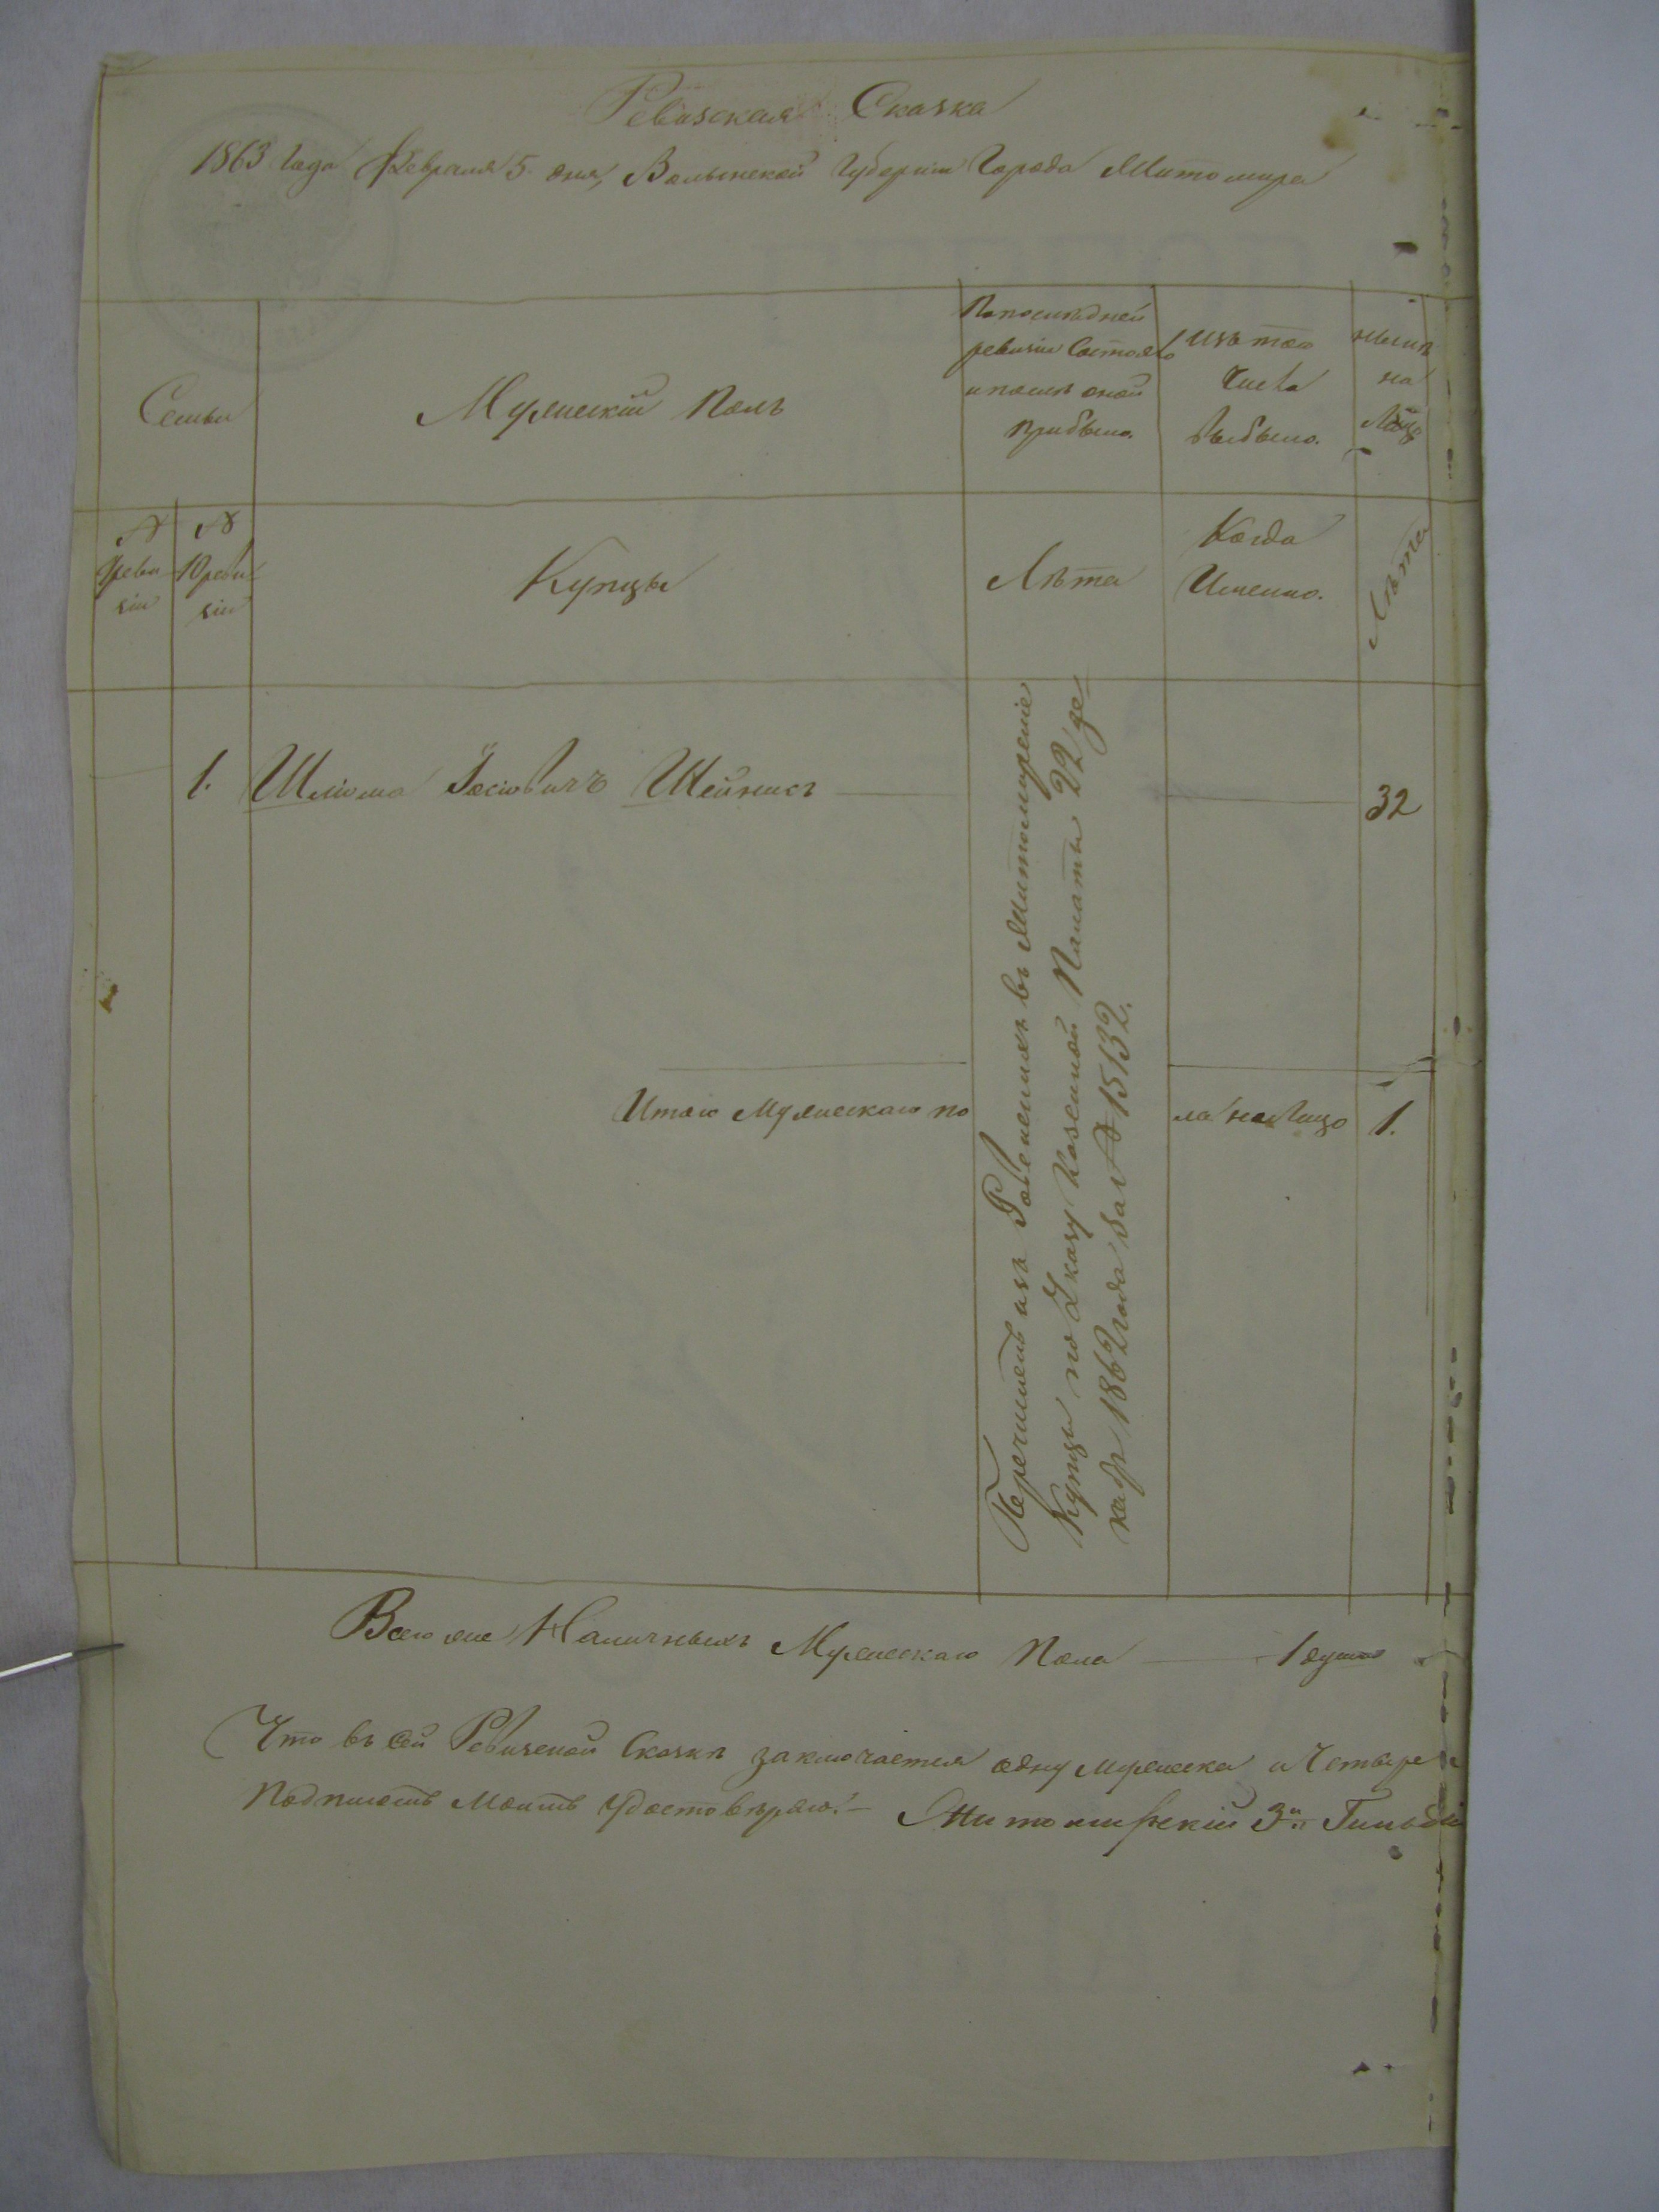 Ревизская Сказка
1863 Года Февраля 5 дня, Волынской Губерніи Города Житомира
Семьи
Мужескій Полъ
По последней
ревизіи Состояло
и после оной
прибыло.
Изъ того
Числа
Выбыло.
Ныне
на
Лицо
№
9 реви
зіи
№
10 реви
зіи
Купцы
Лета
Когда
Именно.
Лета
1. Шліома Іосіовичъ Шейнисъ
32
Перечисленъ изъ Ровенскихъ въ Житомирскіе
Купцы по Указу Казенной Палаты 22 де
кабр 1862 года за № 15132.
Итого Мужескаго по
ла на Лицо 1.
Всего же Наличныхъ Мужескаго Пола 1 душа
Что въ сей Ревизской Сказке заключается одну мужеска и Четыре
Подписомъ Моимъ Удостоверяю. Житомирскій 3й Гильдіи